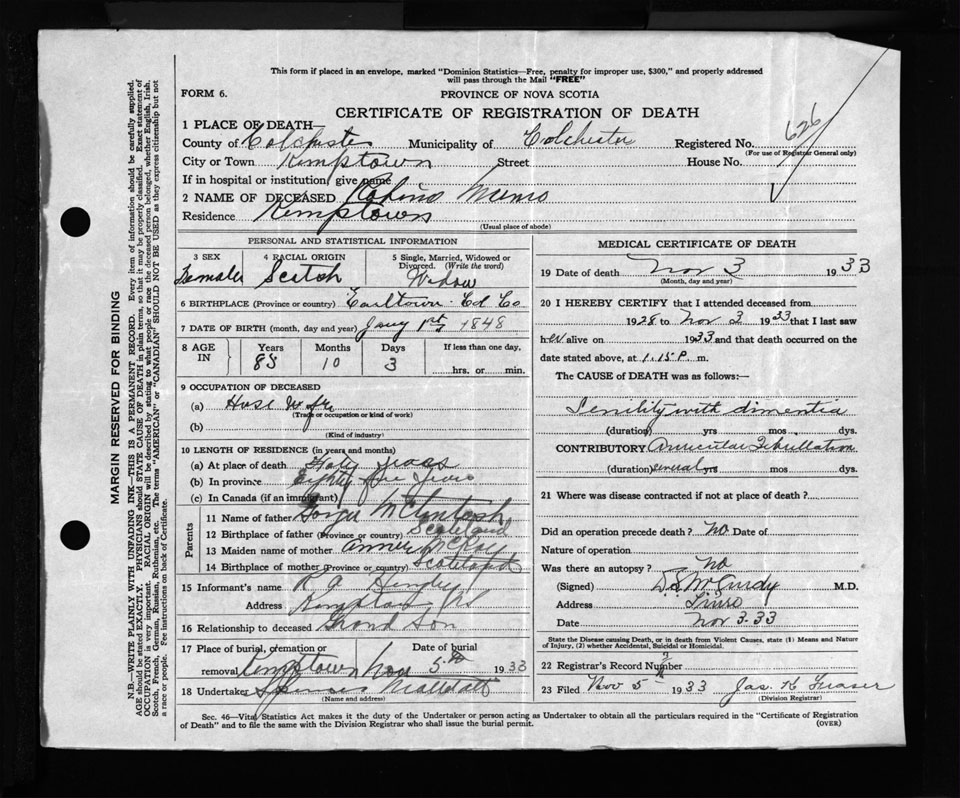 This form if placed in an envelope, marked "Dominion Statistics—Free, penalty for improper use, $300," and properly addressed
will pass through the Mail "FREE"
FORM 6.
PROVINCE OF NOVA SCOTIA
CERTIFICATE OF REGISTRATION OF DEATH
626
1 PLACE OF DEATH—
County of Colchester Municipality of Colchester Registered No.
(For use of Registrar General only)
City or Town Kemptown Street House No.
If in hospital or institution, give name
2 NAME OF DECEASED Munro
Residence Kemptown
(Usual place of abode)
PERSONAL AND STATISTICAL INFORMATION
3 SEX 4 RACIAL ORIGIN 5 Single, Married, Widowed or
Divorced. (Write the word)
Female Scotch Widow
6 BIRTHPLACE (Province or country) Earltown Col Co
7 DATE OF BIRTH (month, day and year) Jany 1st 1848
8 AGE
IN
Years Months Days If less than one day,
85 10 3 hrs. or min.
9 OCCUPATION OF DECEASED
(a) Hose Wife
(Trade or occupation or kind of work)
(b)
(Kind of industry)
10 LENGTH OF RESIDENCE (in years and months)
(a) At place of death
(b) In province Eighty five
(c) In Canada (if an immigrant)
Parents
11 Name of father McIntosh
12 Birthplace of father (Province or country) Scoteland
13 Maiden name of mother McKey
14 Birthplace of mother (Province or country) Scoteland
15 Informant's name R A
Address Kemptown NS
16 Relationship to deceased Grand Son
17 Place of burial, cremation or
removal Kemptown
Date of burial
Nov 5th 1933
18 Undertaker
(Name and address)
MEDICAL CERTIFICATE OF DEATH
19 Date of death Nov 3 1933
(Month, day and year)
20 I HEREBY CERTIFY that I attended deceased from
1928 to Nov 3 1933 that I last saw
her alive on 1933 and that death occurred on the
date stated above, at 1.15 P. m.
The CAUSE of DEATH was as follows:—
Senility with dimentia
(duration) yrs mos. dys.
CONTRIBUTORY Auricular Fibrillation
(duration) several yrs mos. dys.
21 Where was disease contracted if not at place of death?
Did an operation precede death? No Date of
Nature of operation
Was there an autopsy? No
(Signed) D.S. McCurdy M.D.
Address Truro
Date Nov 3.33
State the Disease causing Death, or in death from Violent Causes, state (1) Means and Nature
of Injury, (2) whether Accidental, Suicidal or Homicidal.
22 Registrar's Record Number
23 Filed Nov 5 1933 Jas. K Fraser
(Division Registrar)
Sec. 46—Vital Statistics Act makes it the duty of the Undertaker or person acting as Undertaker to obtain all the particulars required in the "Certificate of Registration
of Death" and to file the same with the Division Registrar who shall issue the burial permit.
(OVER)
MARGIN RESERVED FOR BINDING
N.B.—WRITE PLAINLY WITH UNFADING INK—THIS IS A PERMANENT RECORD. Every item of information should be carefully supplied.
AGE should be stated EXACTLY. PHYSICIANS should STATE CAUSE OF DEATH in plain terms, so that it may be properly classified. Exact statement of
OCCUPATION is very important. RACIAL ORIGIN will be described by stating to what people or race the deceased person belonged, whether English, Irish,
Scotch, French, German, Russian, Ruthenian, etc. The terms "AMERICAN" or "CANADIAN" SHOULD NOT BE USED as they express citizenship but not
a race or people. See instructions on back of Certificate.